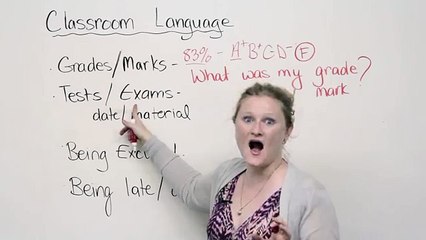 Classroom Language
· Grades/Marks - 83% - A+ B+ C D- F
What was my grade?
mark
· Tests/Exams -
date/material
· Being
· Being late/